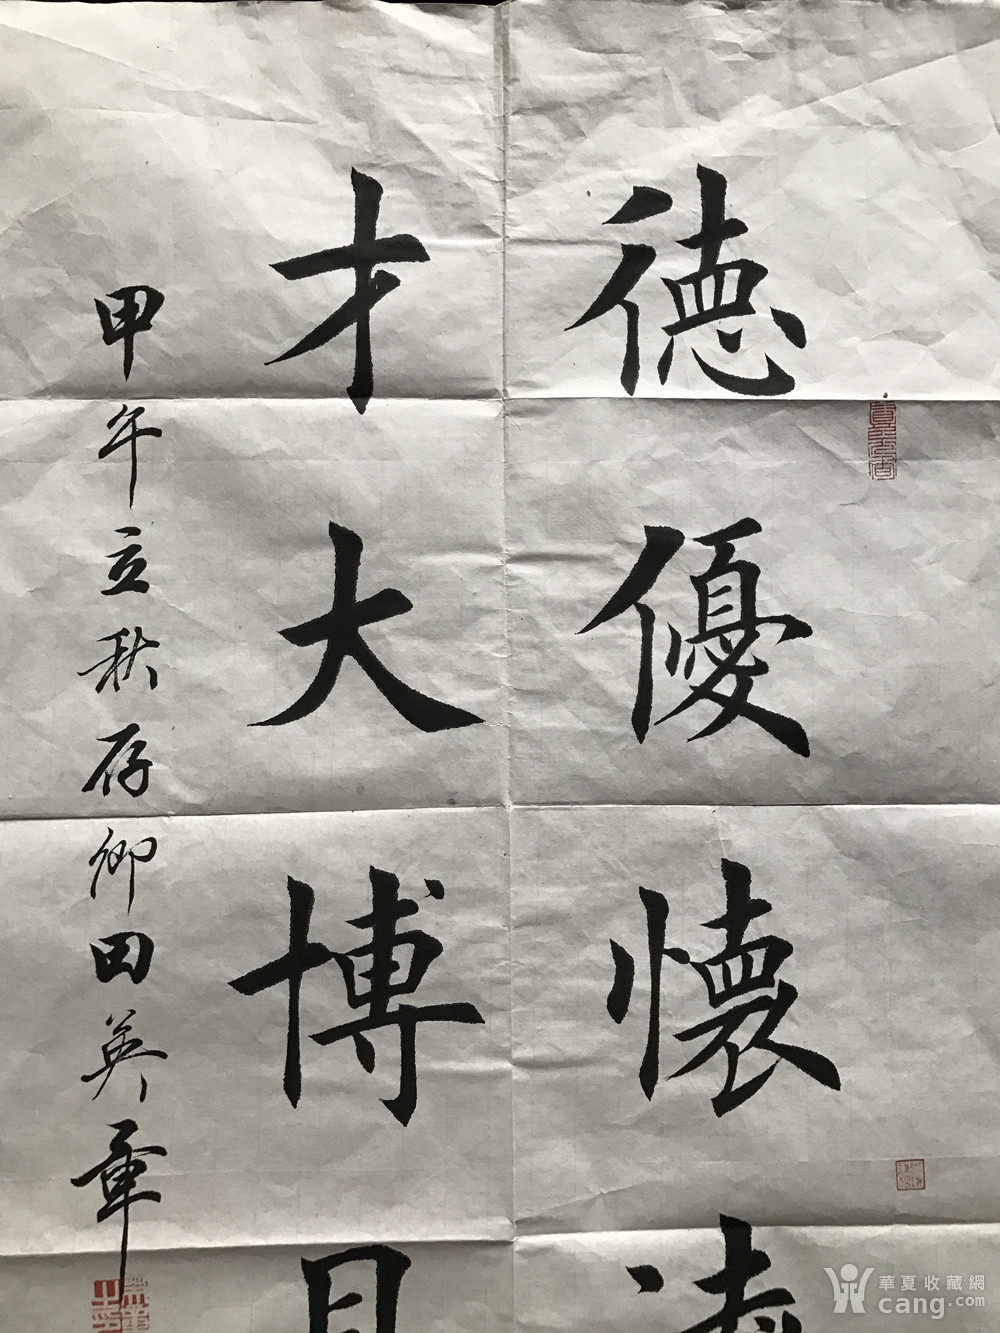 德優懷
才大博
甲午立秋存卿田英章
華夏收藏網
cang.com